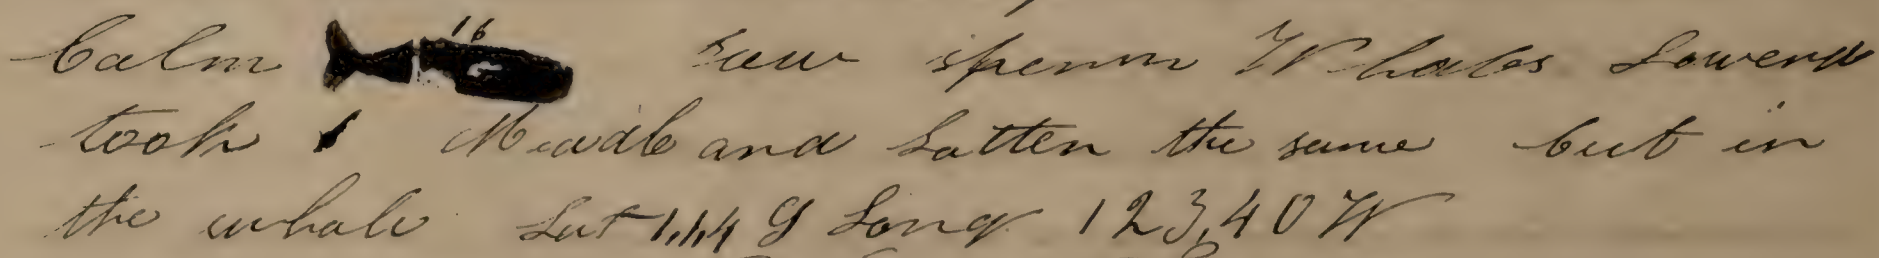 Calm 16 saw sperm Whales Lowerd
took 1 Middle and Latten the same but in
the whale Lat 1,14 S Long 123,40 W